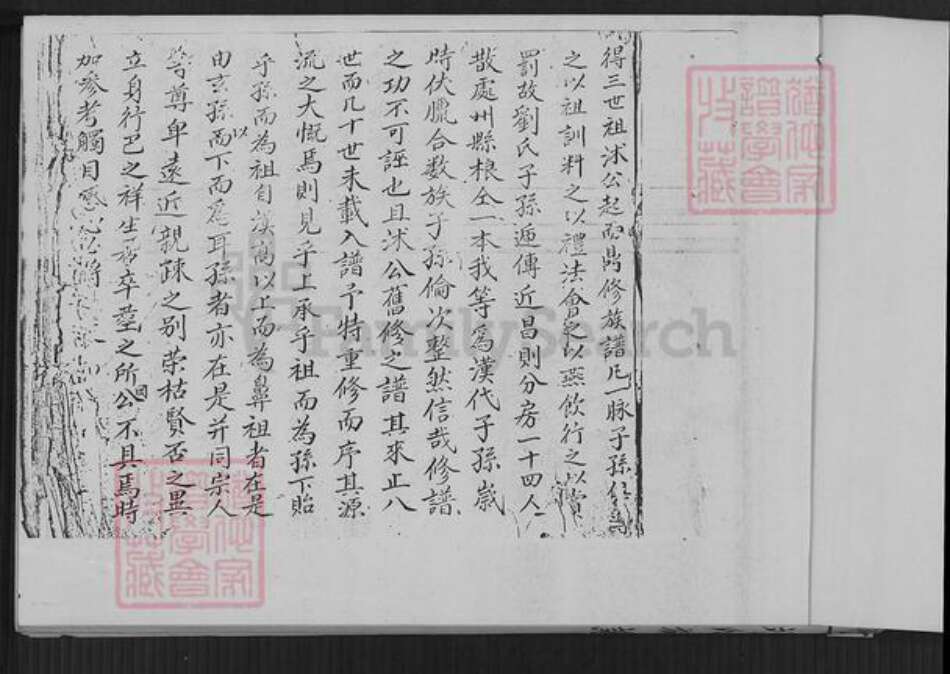 得三世祖沭公起而爲修族譜凡一脉子孫
之以祖訓料之以禮法會之以燕飲行之以賞
罰故劉氏子孫逓傳近昌則分房一十四人
散處州縣根仝一本我等爲漢代子孫歲
時伏臘合数族子孫倫次整然信哉修譜
之功不可誣也且沭公舊修之譜其來止八
世而几十世未載入譜予特重修而序其源
流之大慨焉則見乎上承乎祖而為孫下貽
乎孫而為祖自漢高以上而為鼻祖者在是
由玄孫而以下而爲耳孫者亦在是并同宗人
等尊卑遠近親疎之别荣枯賢否之異
立身行己之祥生卒塟之所公不具焉時
加參考觸目
FamilySearch
學會
收藏